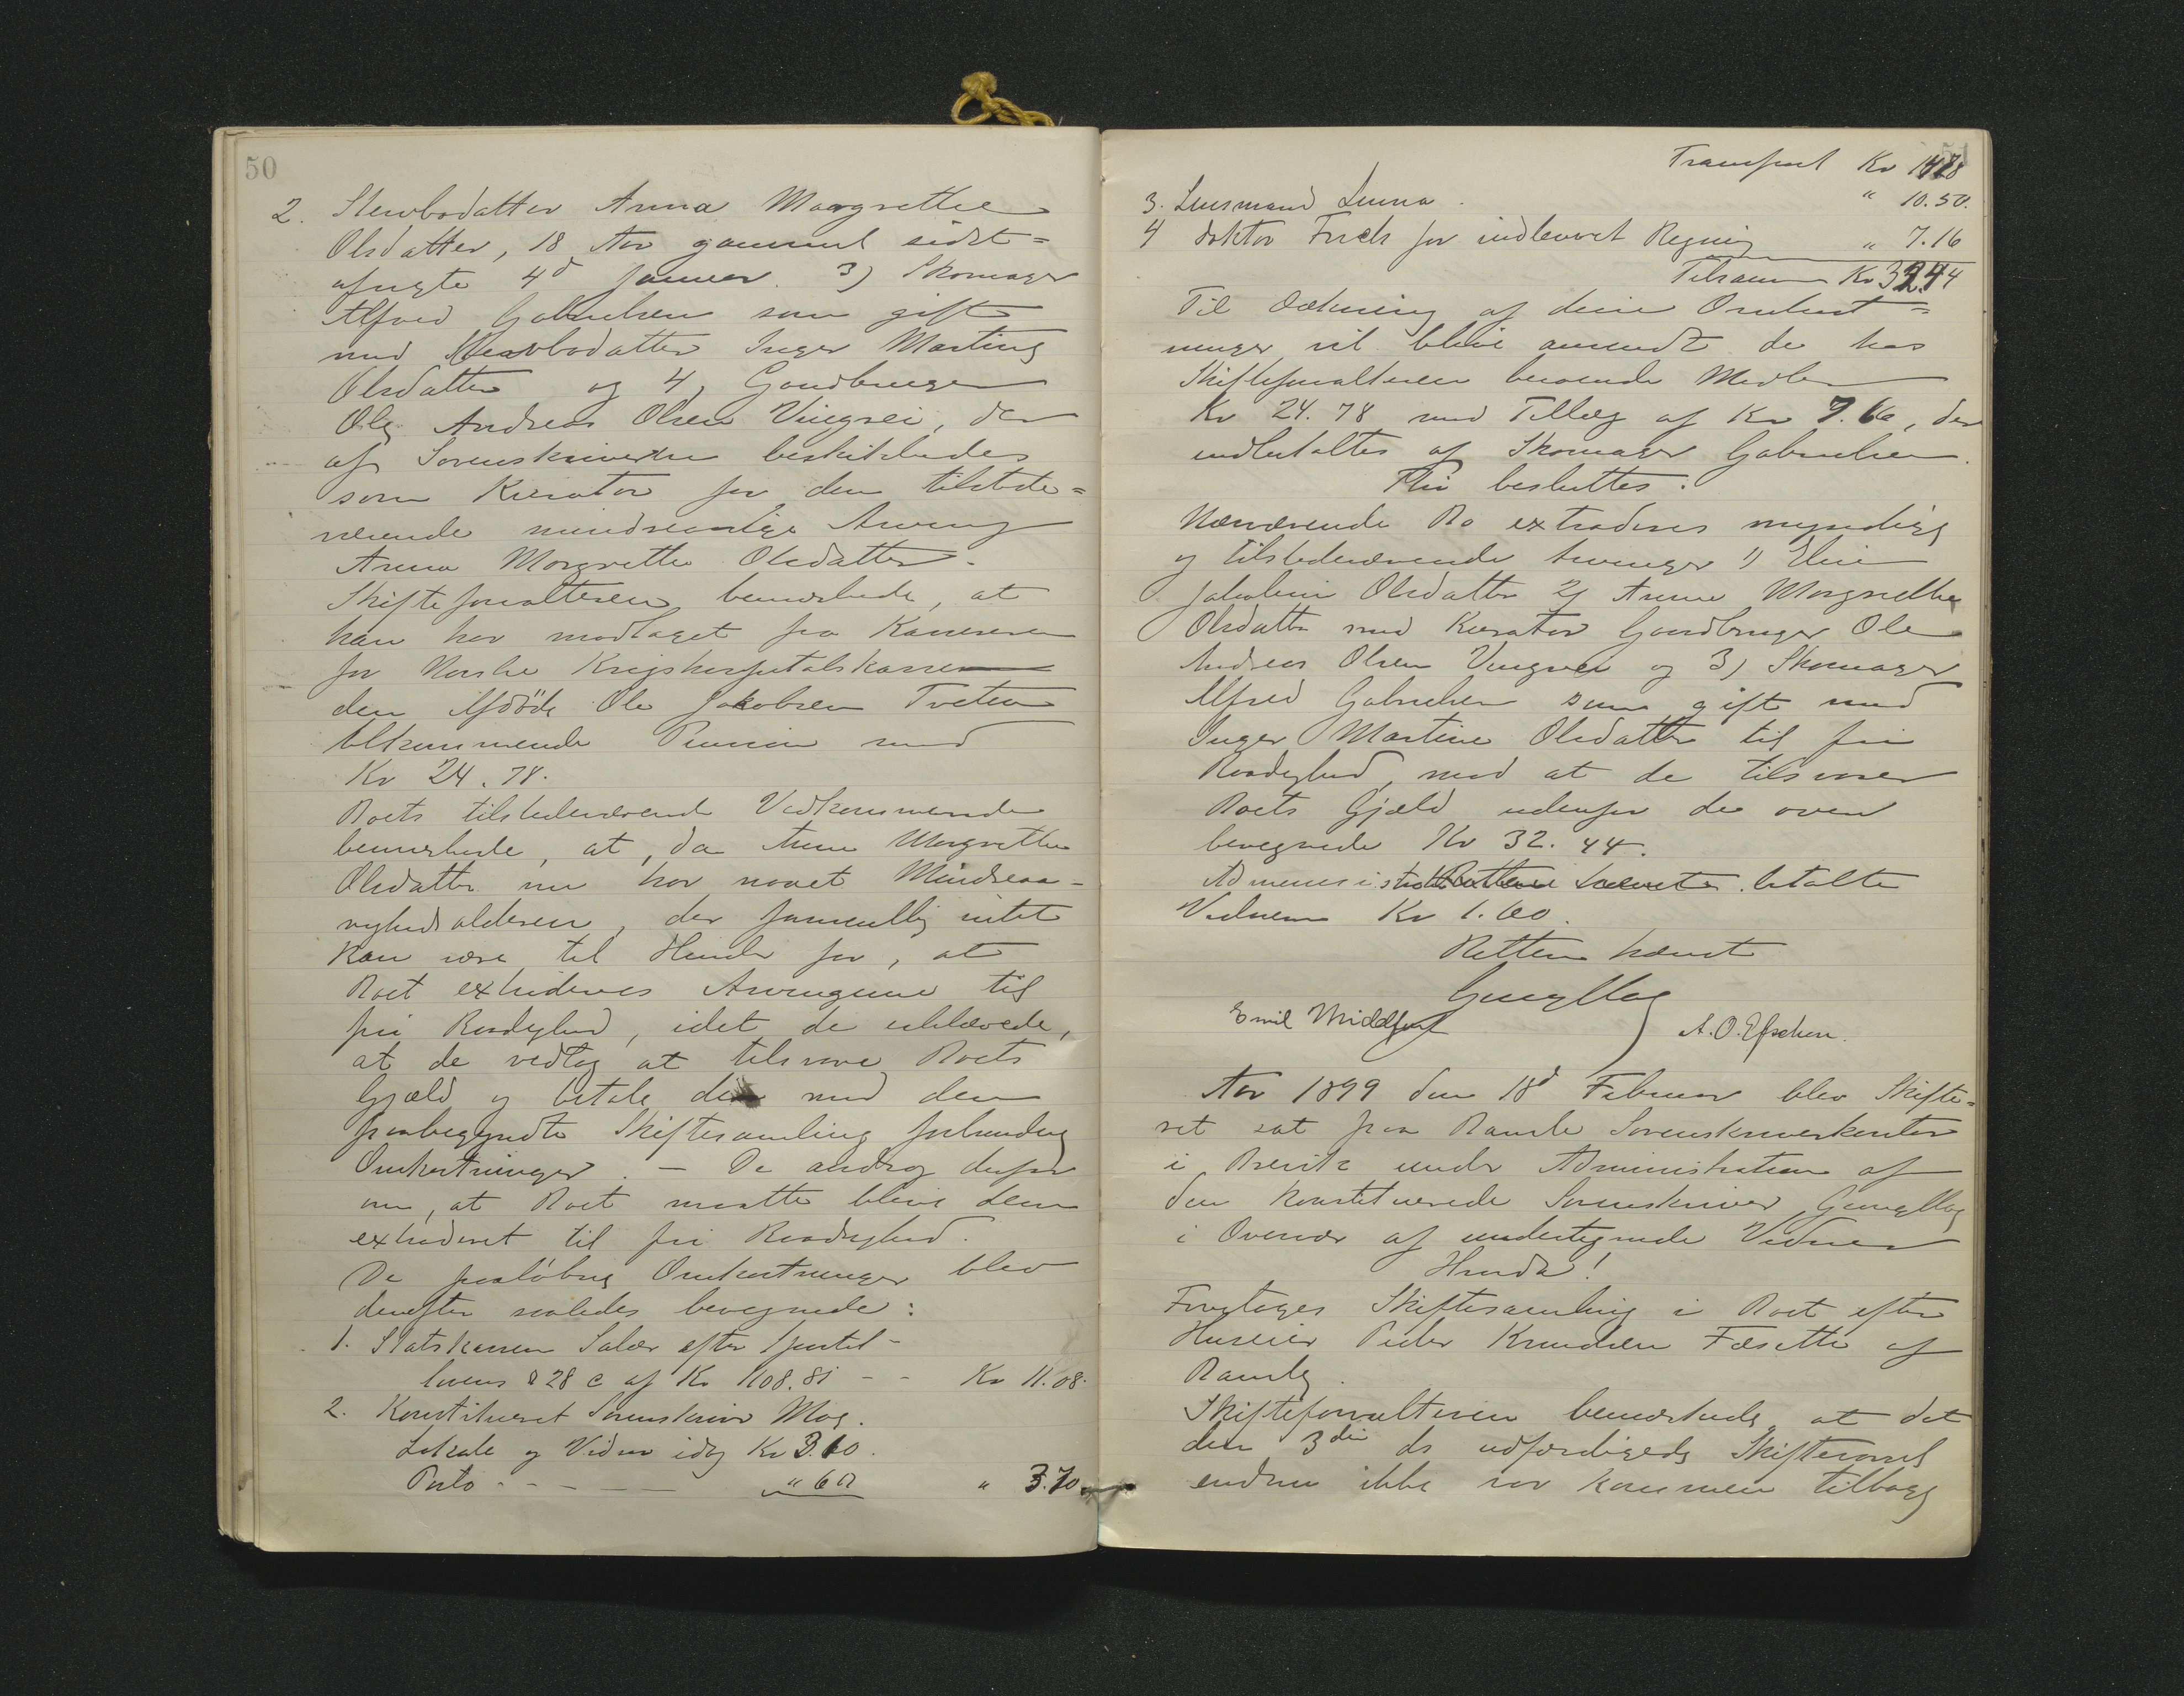 50
2. Stervbodatter Anna Margrethe
Olsdatter, 18 Aar gammel sidst=
afvigte 4d Januar. 3) Skomager
Alfred Gabrielsen som gift
med Stervbodatter Inger Martine
Olsdatter og 4, Gaardbruger
Ole Andreas Olsen Vingrei, der
af Sorenskriveren beskikkedes
som Kurator for den tilstede=
værende mindreaarige Arving
Anna Margrethe Olsdatter.
Skifteforvalteren bemærkede, at
han har modtaget fra Kassereren
for Norske Krigshospitalskasse
den Afdøde Ole Jakobsen Tveten
tilkommende Pension med
Kr 24.78.
Boets tilstedeværende Vedkommende
bemærkede, at, da Anna Margrethe
Olsdatter nu har naaet Mindreaa-
righedsalderen, der formentlig intet
kan være til Hinder for, at
Boet extraderes Arvingerne til
fri Raadighed, idet de erklærede,
at de vedtog at tilsvare Boets
Gjæld og betale de med den
paabegyndte Skiftesamling forbundne
Omkostninger. – De androg derfor
om, at Boet maatte blive dem
extraderet til fri Raadighed.
De paaløbne Omkostninger blev
derefter saaledes beregnede:
1. Statskassen Salær efter Sportel-
lovens § 28 c af Kr 1108.81 - - Kr 11.08.
2. Konstitueret Sorenskriver Mog.
Lokale og Vidner idag Kr 3.10.
Porto - - - — " 60 " 3.70
Transport Kr 14.78
3. Lensmand Lunna. " 10.50.
4 Doktor for indleveret Regning " 7.16
Tilsammen Kr 32.44
Til Dækning af disse Omkost=
ninger vil blive anvendt de hos
Skifteforvalteren beroende Midler
Kr 24.78 med Tillæg af Kr 7.66, der
indbetaltes af Skomager Gabrielsen.
Thi besluttes:
Nærværende Bo extraderes myndige
og tilstedeværende Arvinger 1) Eline
Jakobine Olsdatter 2) Anna Margrethe
Olsdatter med Kurator Gaardbruger Ole
Andreas Olsen Vingrei og 3) Skomager
Alfred Gabrielsen som gift med
Inger Martine Olsdatter til fri
Raadighed, mod at de tilsvarer
Boets Gjæld udenfor de oven
beregnede Kr 32.44.
betalte
Vidnerne Kr 1.60.
Retten hævet
Emil Middelfart A. O. Eskelsen.
Aar 1899 den 18d Februar blev Skifte=
ret sat paa Bamle Sorenskriverkontor
i Brevik under Administration af
den konstituerede Sorenskriver
i Overvær af undertegnede Vidner
Hvorda!
Foretoges Skiftesamling i Boet efter
Huseier Peder Knudsen Fæsette af
Bamle.
Skifteforvalteren bemærkede, at det
den 3die ds udfærdigede Skiftevarsel
endnu ikke var kommen tilbage